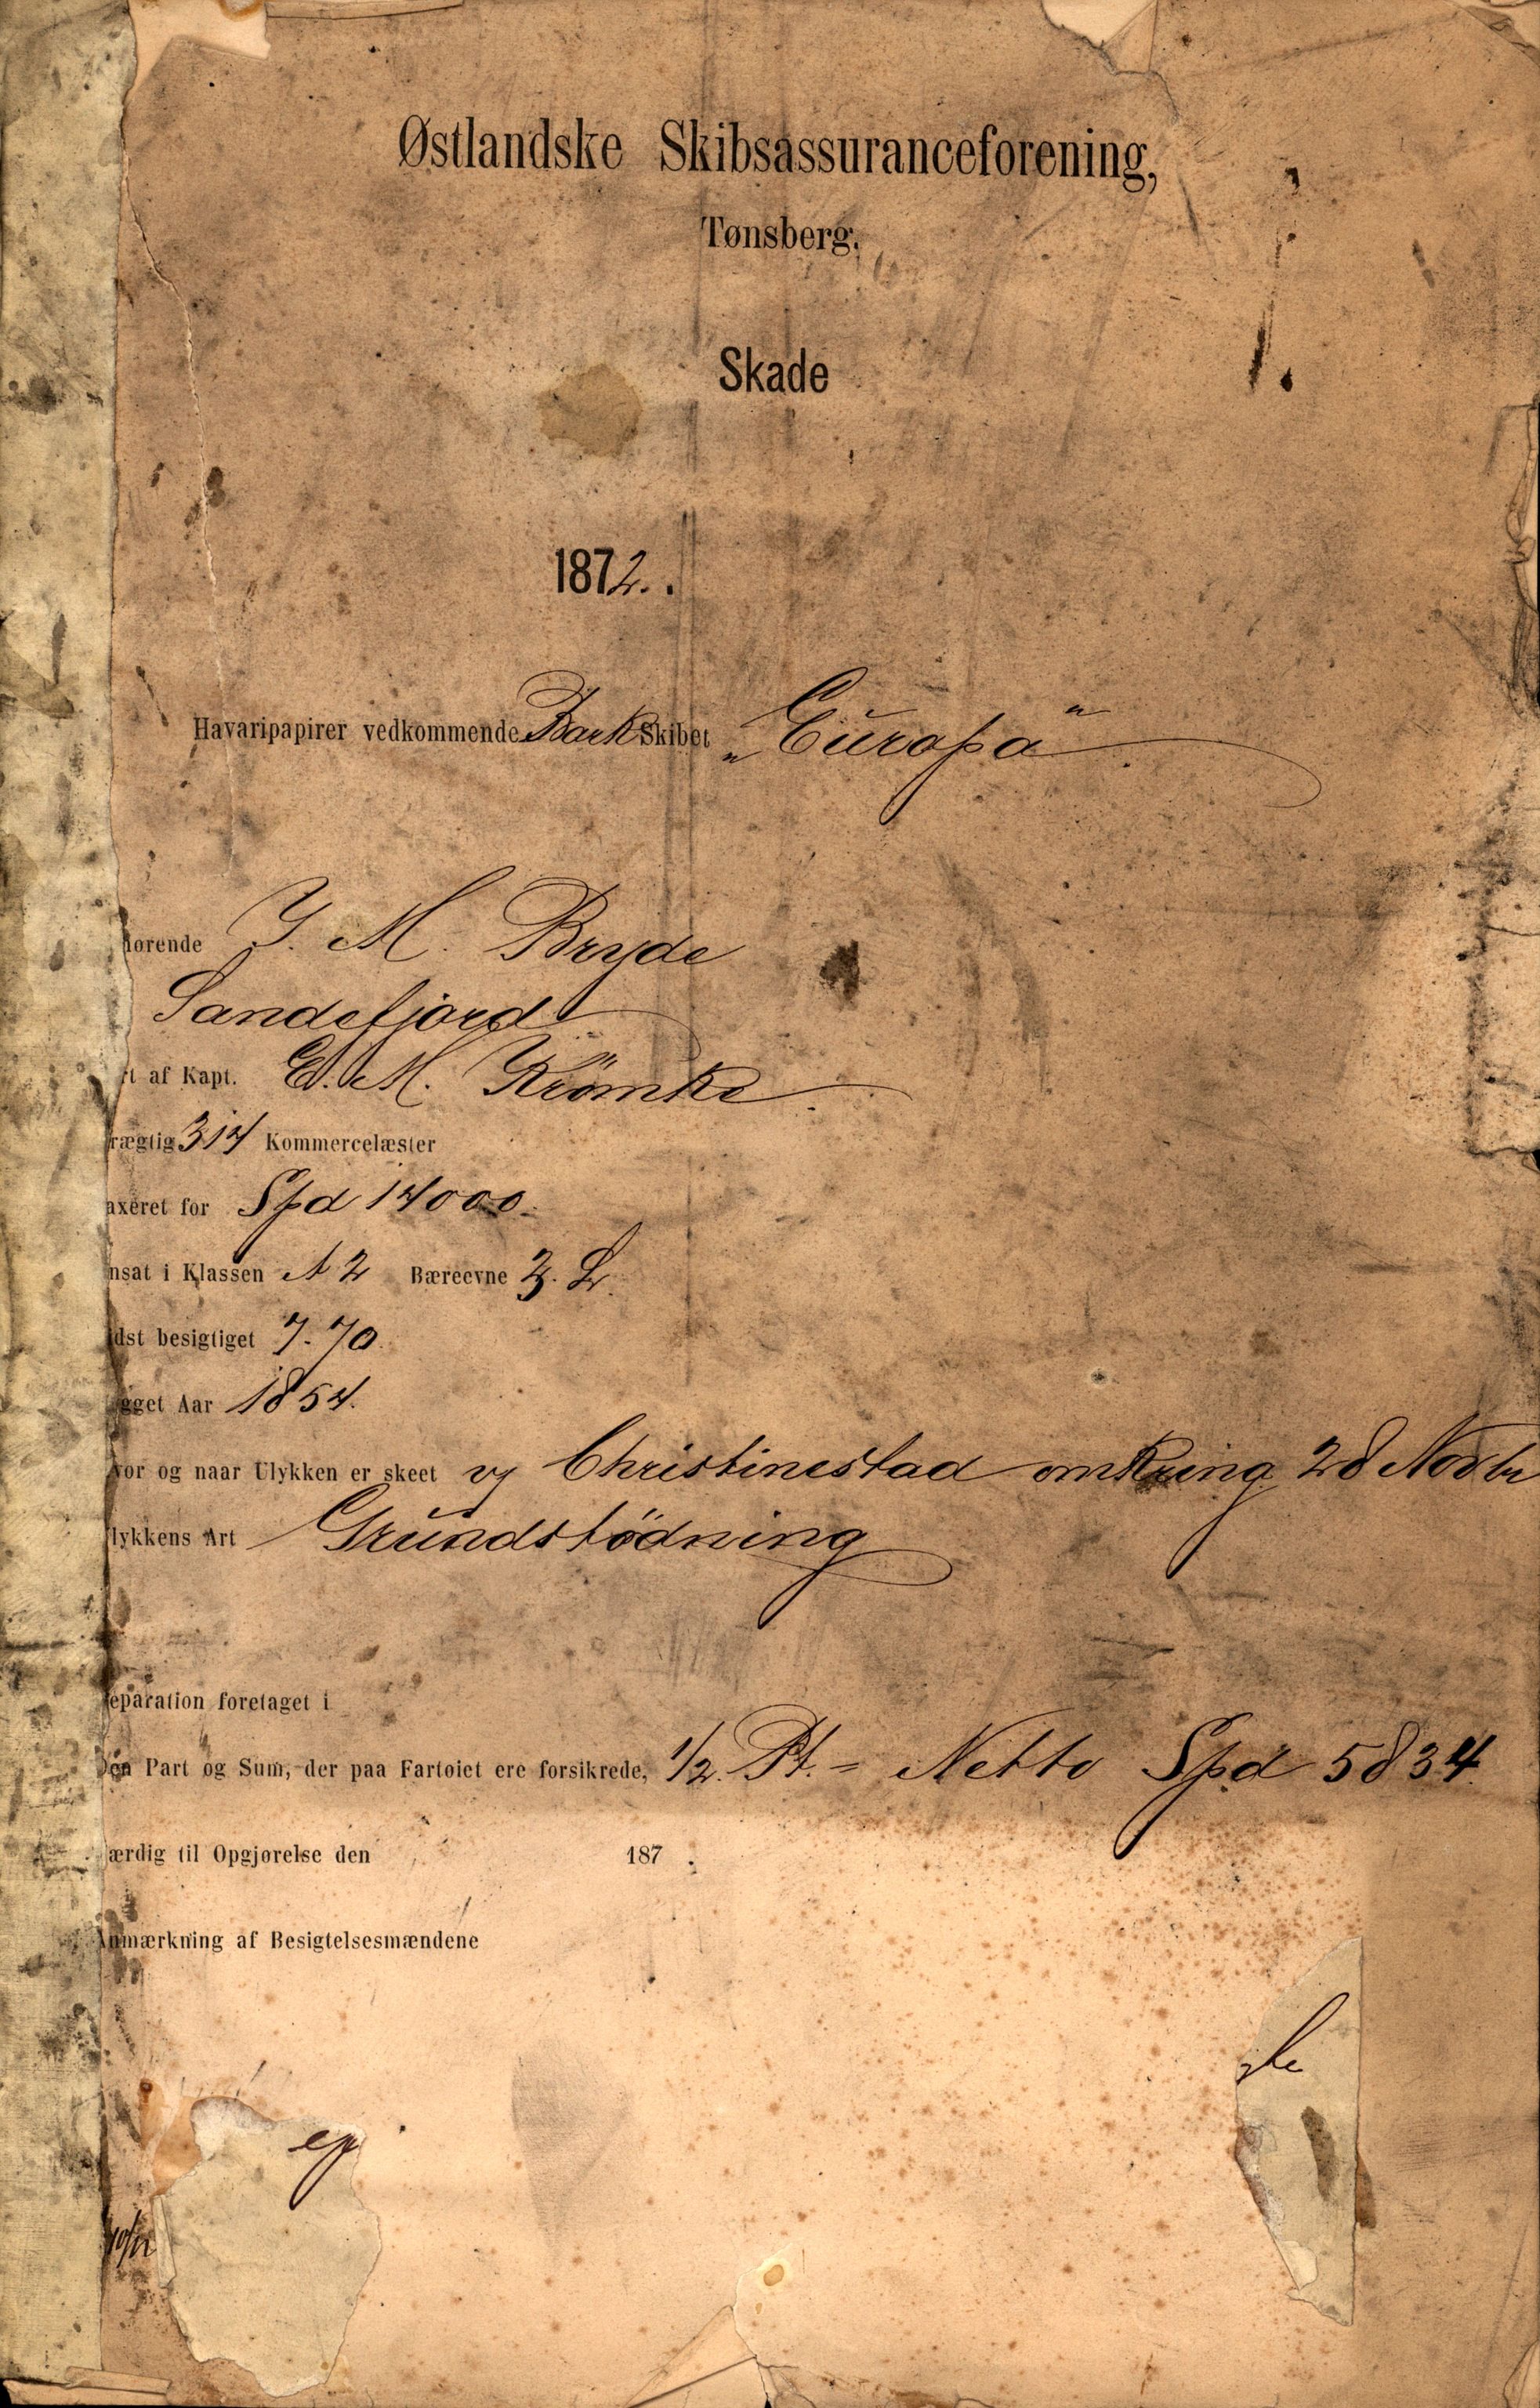 Østlandske Skibsassuranceforening,
Tønsberg.
Skade
1.
1872.
Havaripapirer vedkommende Bark Skibet „Europa"
hørende J. M. Bryde
Sandefjord
rt af Kapt. E. M. Krömke
rægtig 314 Kommercelæster
axeret for Spd 14000.
nsat i Klassen A 2 Bæreevne 3. L.
idst besigtiget 7.70.
gget Aar 1854.
vor og naar Ulykken er skeet v/ Christinestad omkring 28 Novbr
lykkens Art Grundstödning
eparation foretaget i
Den Part og Sum, der paa Fartøiet ere forsikrede, 1/2. Pt. = Netto Spd 5834.
ærdig til Opgjørelse den 187 .
Anmærkning af Besigtelsesmændene